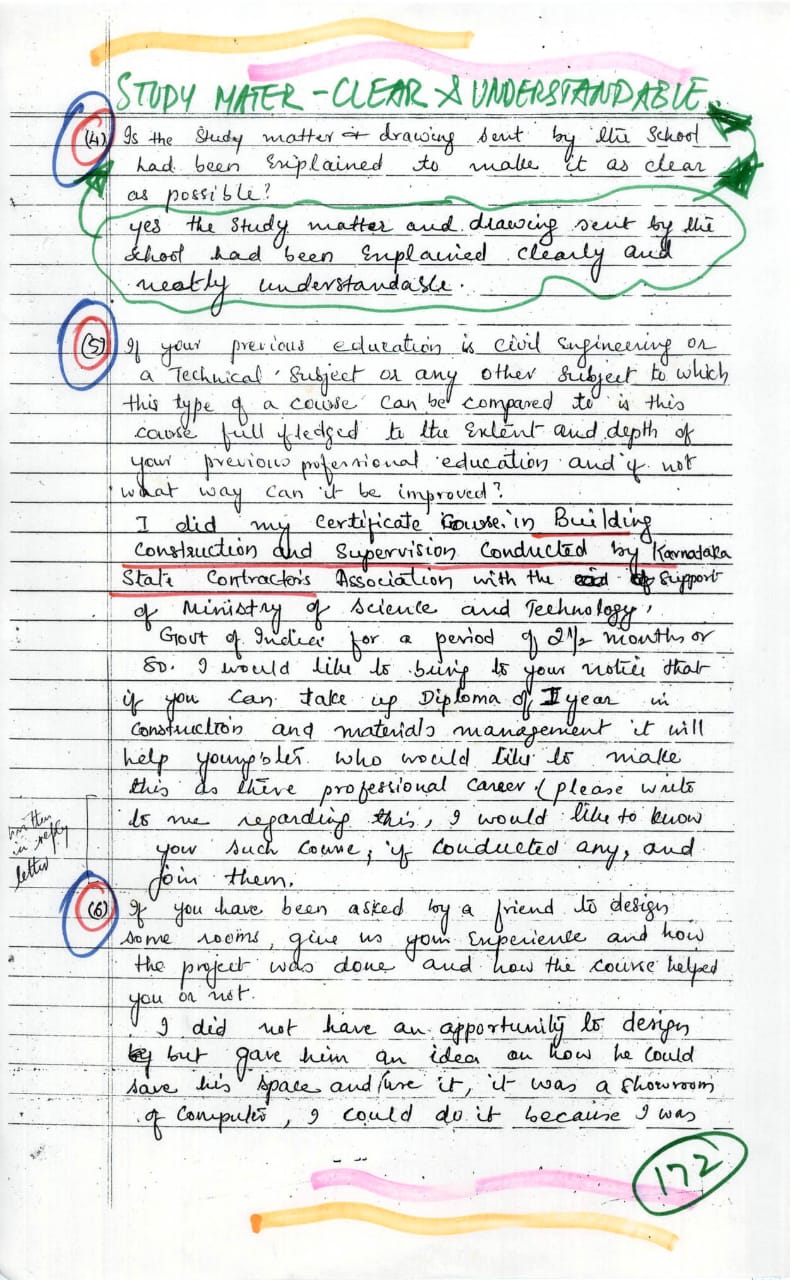 STUDY MATER - CLEAR & UNDERSTANDABLE
(4) Is the study matter & drawing sent by the school
had been Explained to make it as clear
as possible?
yes the study matter and drawing sent by the
school had been Explained clearly and
neatly understandable.
(5) If your previous education is civil Engineering or
a Technical Subject or any other subject to which
this type of a course can be compared to is this
course full fledged to the Extent and depth of
your previous professional education and if not
what way can it be improved?
I did my certificate course in Building
Construction and Supervision Conducted by Karnataka
State Contractors Association with the support
of Ministry of Science and Technology,
Govt of India for a period of 2 1/2 months or
so. I would like to bring to your notice that
if you can take up Diploma of I year in
Construction and materials management it will
help youngster who would like to make
this as there professional career & please write
to me regarding this, I would like to know
your such course, if conducted any, and
join them.
written
in reply
letter
(6) If you have been asked by a friend to design
some rooms, give us your Experience and how
the project was done and how the course helped
you or not.
I did not have an opportunity to design
but gave him an idea on how he could
save his space and/use it, it was a showroom
of Computer, I could do it because I was
172